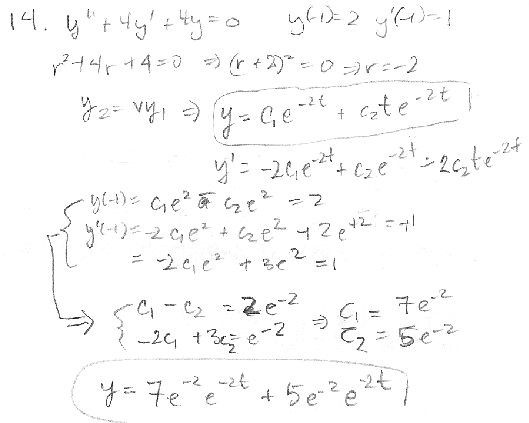 14. y'' + 4y' + 4y = 0    y(-1) = 2  y'(-1) = 1
r² + 4r + 4 = 0 ⇒ (r + 2)² = 0 ⇒ r = -2
y₂ = vy₁ ⇒ y = C₁e^{-2t} + c₂te^{-2t}
y' = -2c₁e^{-2t} + c₂e^{-2t} - 2c₂te^{-2t}
y(-1) = c₁e² - c₂e² = 2
y'(-1) = -2c₁e² + c₂e² + 2e^{+2} = +1
= -2c₁e² + 3e² = 1
⇒ { c₁ - c₂ = 2e^{-2} ⇒ C₁ = 7e^{-2}
-2c₁ + 3c₂ = e^{-2}    C₂ = 5e^{-2}
y = 7e^{-2}e^{-2t} + 5e^{-2}e^{-2t}